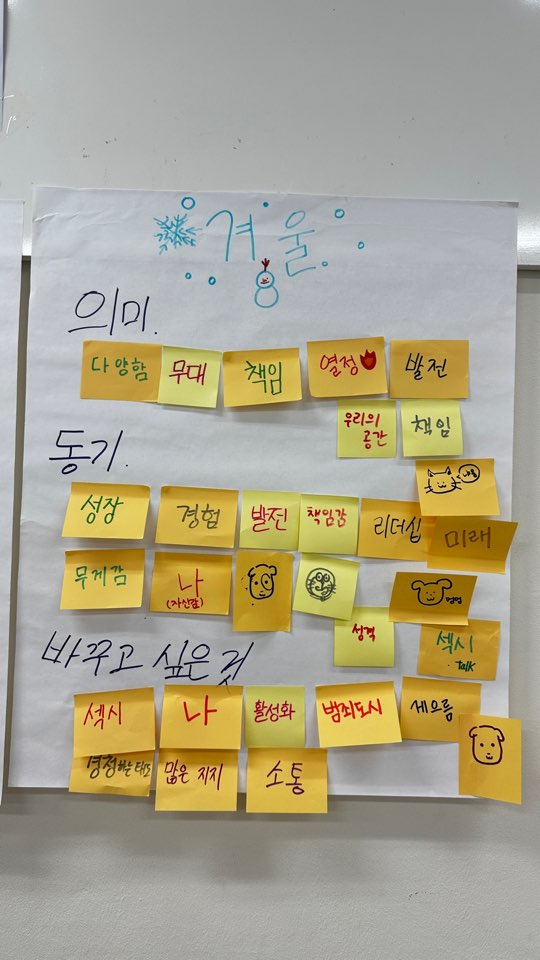 겨울
의미.
다양함
무대
책임
열정
발전
우리의
공간
책임
동기.
성장
경험
발전
책임감
리더십
미래
무게감
나
(자신감)
성격
섹시
talk
바꾸고 싶은 것
섹시
나
활성화
범죄도시
게으름
경청하는 태도
많은 지지
소통